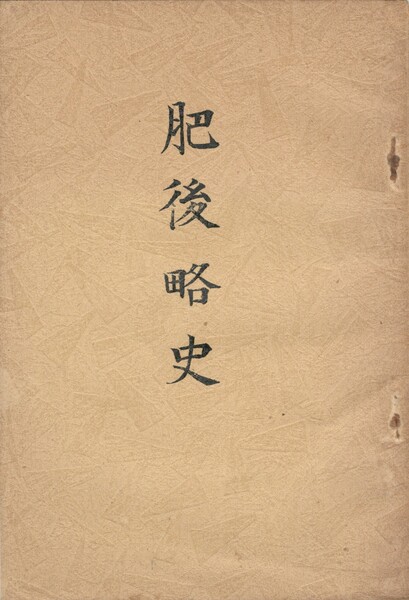 肥後略史